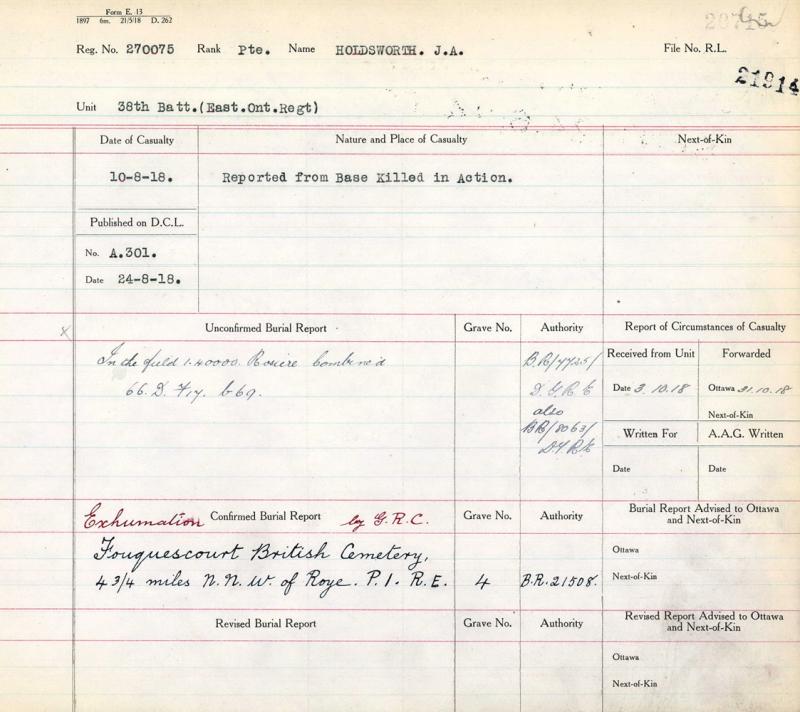 Form E. 13
1897 6m. 21/5/18 D. 262
Reg. No. 270075 Rank Pte. Name HOLDSWORTH. J.A. File No. R.L.
21914
Unit 38th Batt.(East.Ont.Regt)
Date of Casualty Nature and Place of Casualty Next-of-Kin
10-8-18. Reported from Base Killed in Action.
Published on D.C.L.
No. A.301.
Date 24-8-18.
x Unconfirmed Burial Report Grave No. Authority Report of Circumstances of Casualty
In the field 1.40000. Rosiere Combine'd B.R/7725/ Received from Unit Forwarded
66. D. F.17. b69. D.G.R.E Date 3.10.18 Ottawa 31.10.18
also Next-of-Kin
BR/8063/ Written For A.A.G. Written
D.G.R.E
Date Date
Exhumation Confirmed Burial Report by G.R.C. Grave No. Authority Burial Report Advised to Ottawa
and Next-of-Kin
Fouquescourt British Cemetery, Ottawa
4 3/4 miles N.N.W. of Roye. P.1. R.E. 4 B.R.21508. Next-of-Kin
Revised Burial Report Grave No. Authority Revised Report Advised to Ottawa
and Next-of-Kin
Ottawa
Next-of-Kin